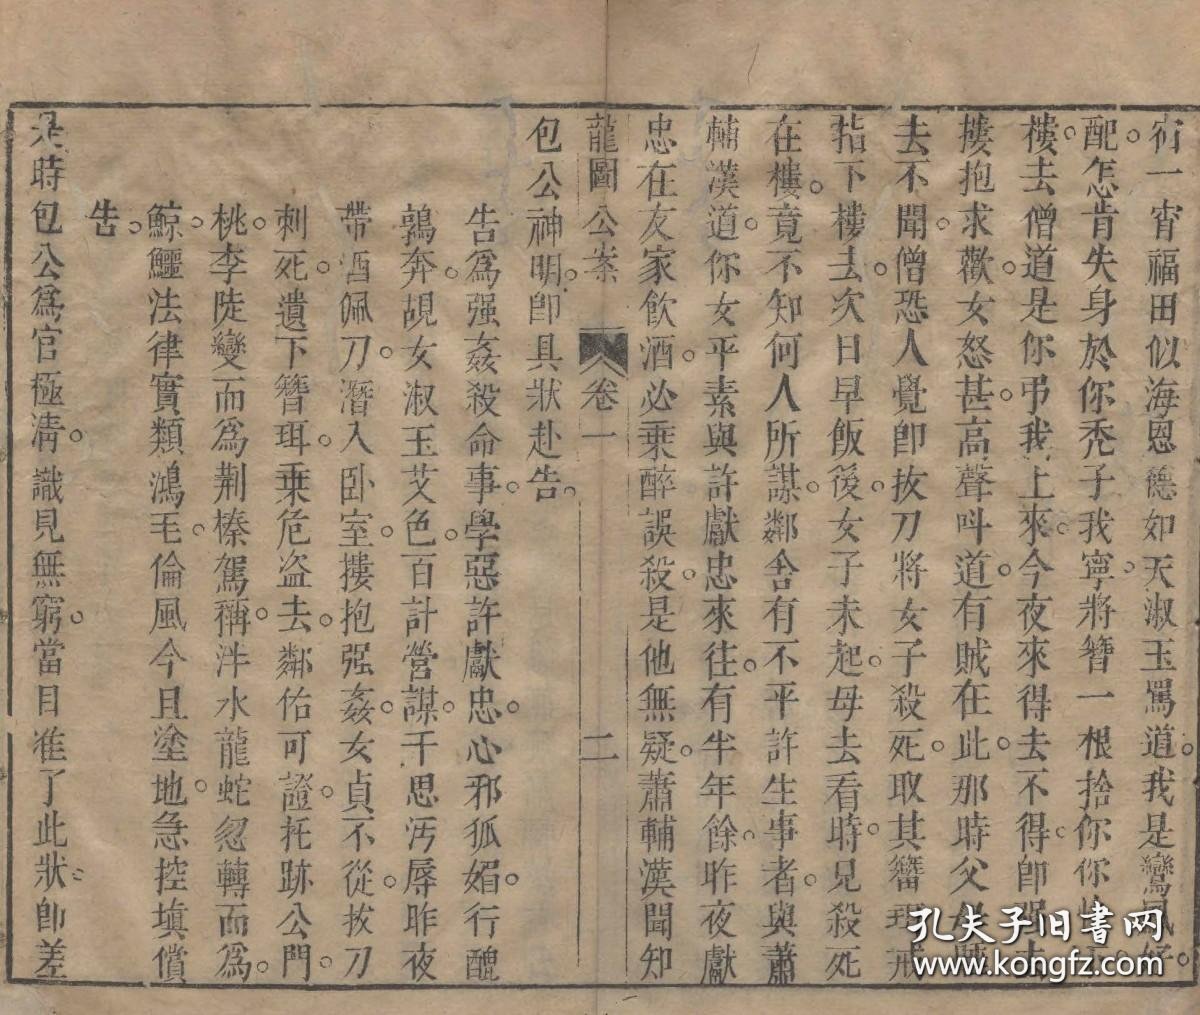 宿一宵福田似海恩德如天淑玉罵道我是鸞鳳好
配怎肯失身於你禿子我寧將簪一根捨你你
樓去僧道是你弔我上來今夜來得去不得即
摟抱求歡女怒甚高聲叫道有賊在此那時父
去不聞僧恐人覺即拔刀將女子殺死取其簪珥戒
指下樓去次日早飯後女子未起母去看時見殺死
在樓竟不知何人所謀鄰舍有不平許生事者與蕭
輔漢道你女平素與許獻忠來往有半年餘昨夜獻
忠在友家飲酒必乘醉誤殺是他無疑蕭輔漢聞知
龍圖公案 卷一 二
包公神明即具狀赴告
告爲强姦殺命事學惡許獻忠心邪狐媚行醜
鶉奔覘女淑玉艾色百計營謀千思汚辱昨夜
帶酒佩刀潛入卧室摟抱强姦女貞不從拔刀
刺死遺下簪珥乗危盗去鄰佑可證托跡公門
桃李陡變而爲荆榛駕稱泮水龍蛇忽轉而爲
鯨鱷法律實類鴻毛倫風今且塗地急控填償
告
是時包公爲官極清識見無窮當日准了此狀即差
孔夫子旧書网
www.kongfz.com